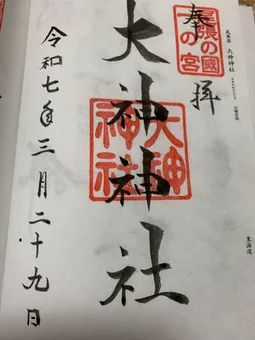 奉拝
尾張の國
一の宮
大神神社
大神
神社
令和七年三月二十九日
尾張国 大神神社
東海道